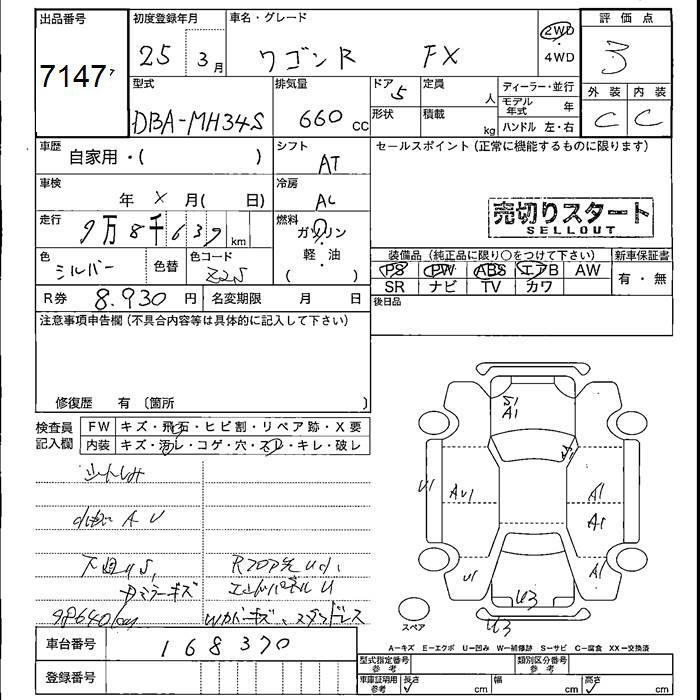 出品番号
7147
初度登録年月
25 3月
車名・グレード
ワゴンR FX
2WD
4WD
評価点
3
外装 内装
C C
型式
DBA-MH34S
排気量
660 cc
ドア
5
形状
定員
人
積載
kg
ディーラー・並行
モデル年式 年
ハンドル 左・右
車歴
自家用・( )
シフト
AT
セールスポイント(正常に機能するものに限ります)
車検
年 X 月( 日)
冷房
AC
売切りスタート
SELLOUT
走行
9万8千639 km
燃料
ガソリン
軽・油
( )
色
シルバー
色替
色コード
Z2S
装備品(純正品に限り○をつけて下さい)
PS PW ABS エアB AW
SR ナビ TV カワ
新車保証書
有・無
R券 8.930 円
名変期限 月 日
後日品
注意事項申告欄(不具合内容等は具体的に記入して下さい)
修復歴 有 〔箇所 〕
検査員記入欄
FW キズ・飛石・ヒビ割・リペア跡・X要
内装 キズ・汚レ・コゲ・穴・スレ・キレ・破レ
A U
98640km
車台番号
168370
登録番号
S1
A1
U1
AU1
A1
A1
U1
A1
U3
U3
スペア
A－キズ E－エクボ U－凹み W－補修跡 S－サビ C－腐食 XX－交換済
型式指定番号
参考
類別区分番号
参考
車庫証明用
参考
長さ
cm
幅
cm
高さ
cm